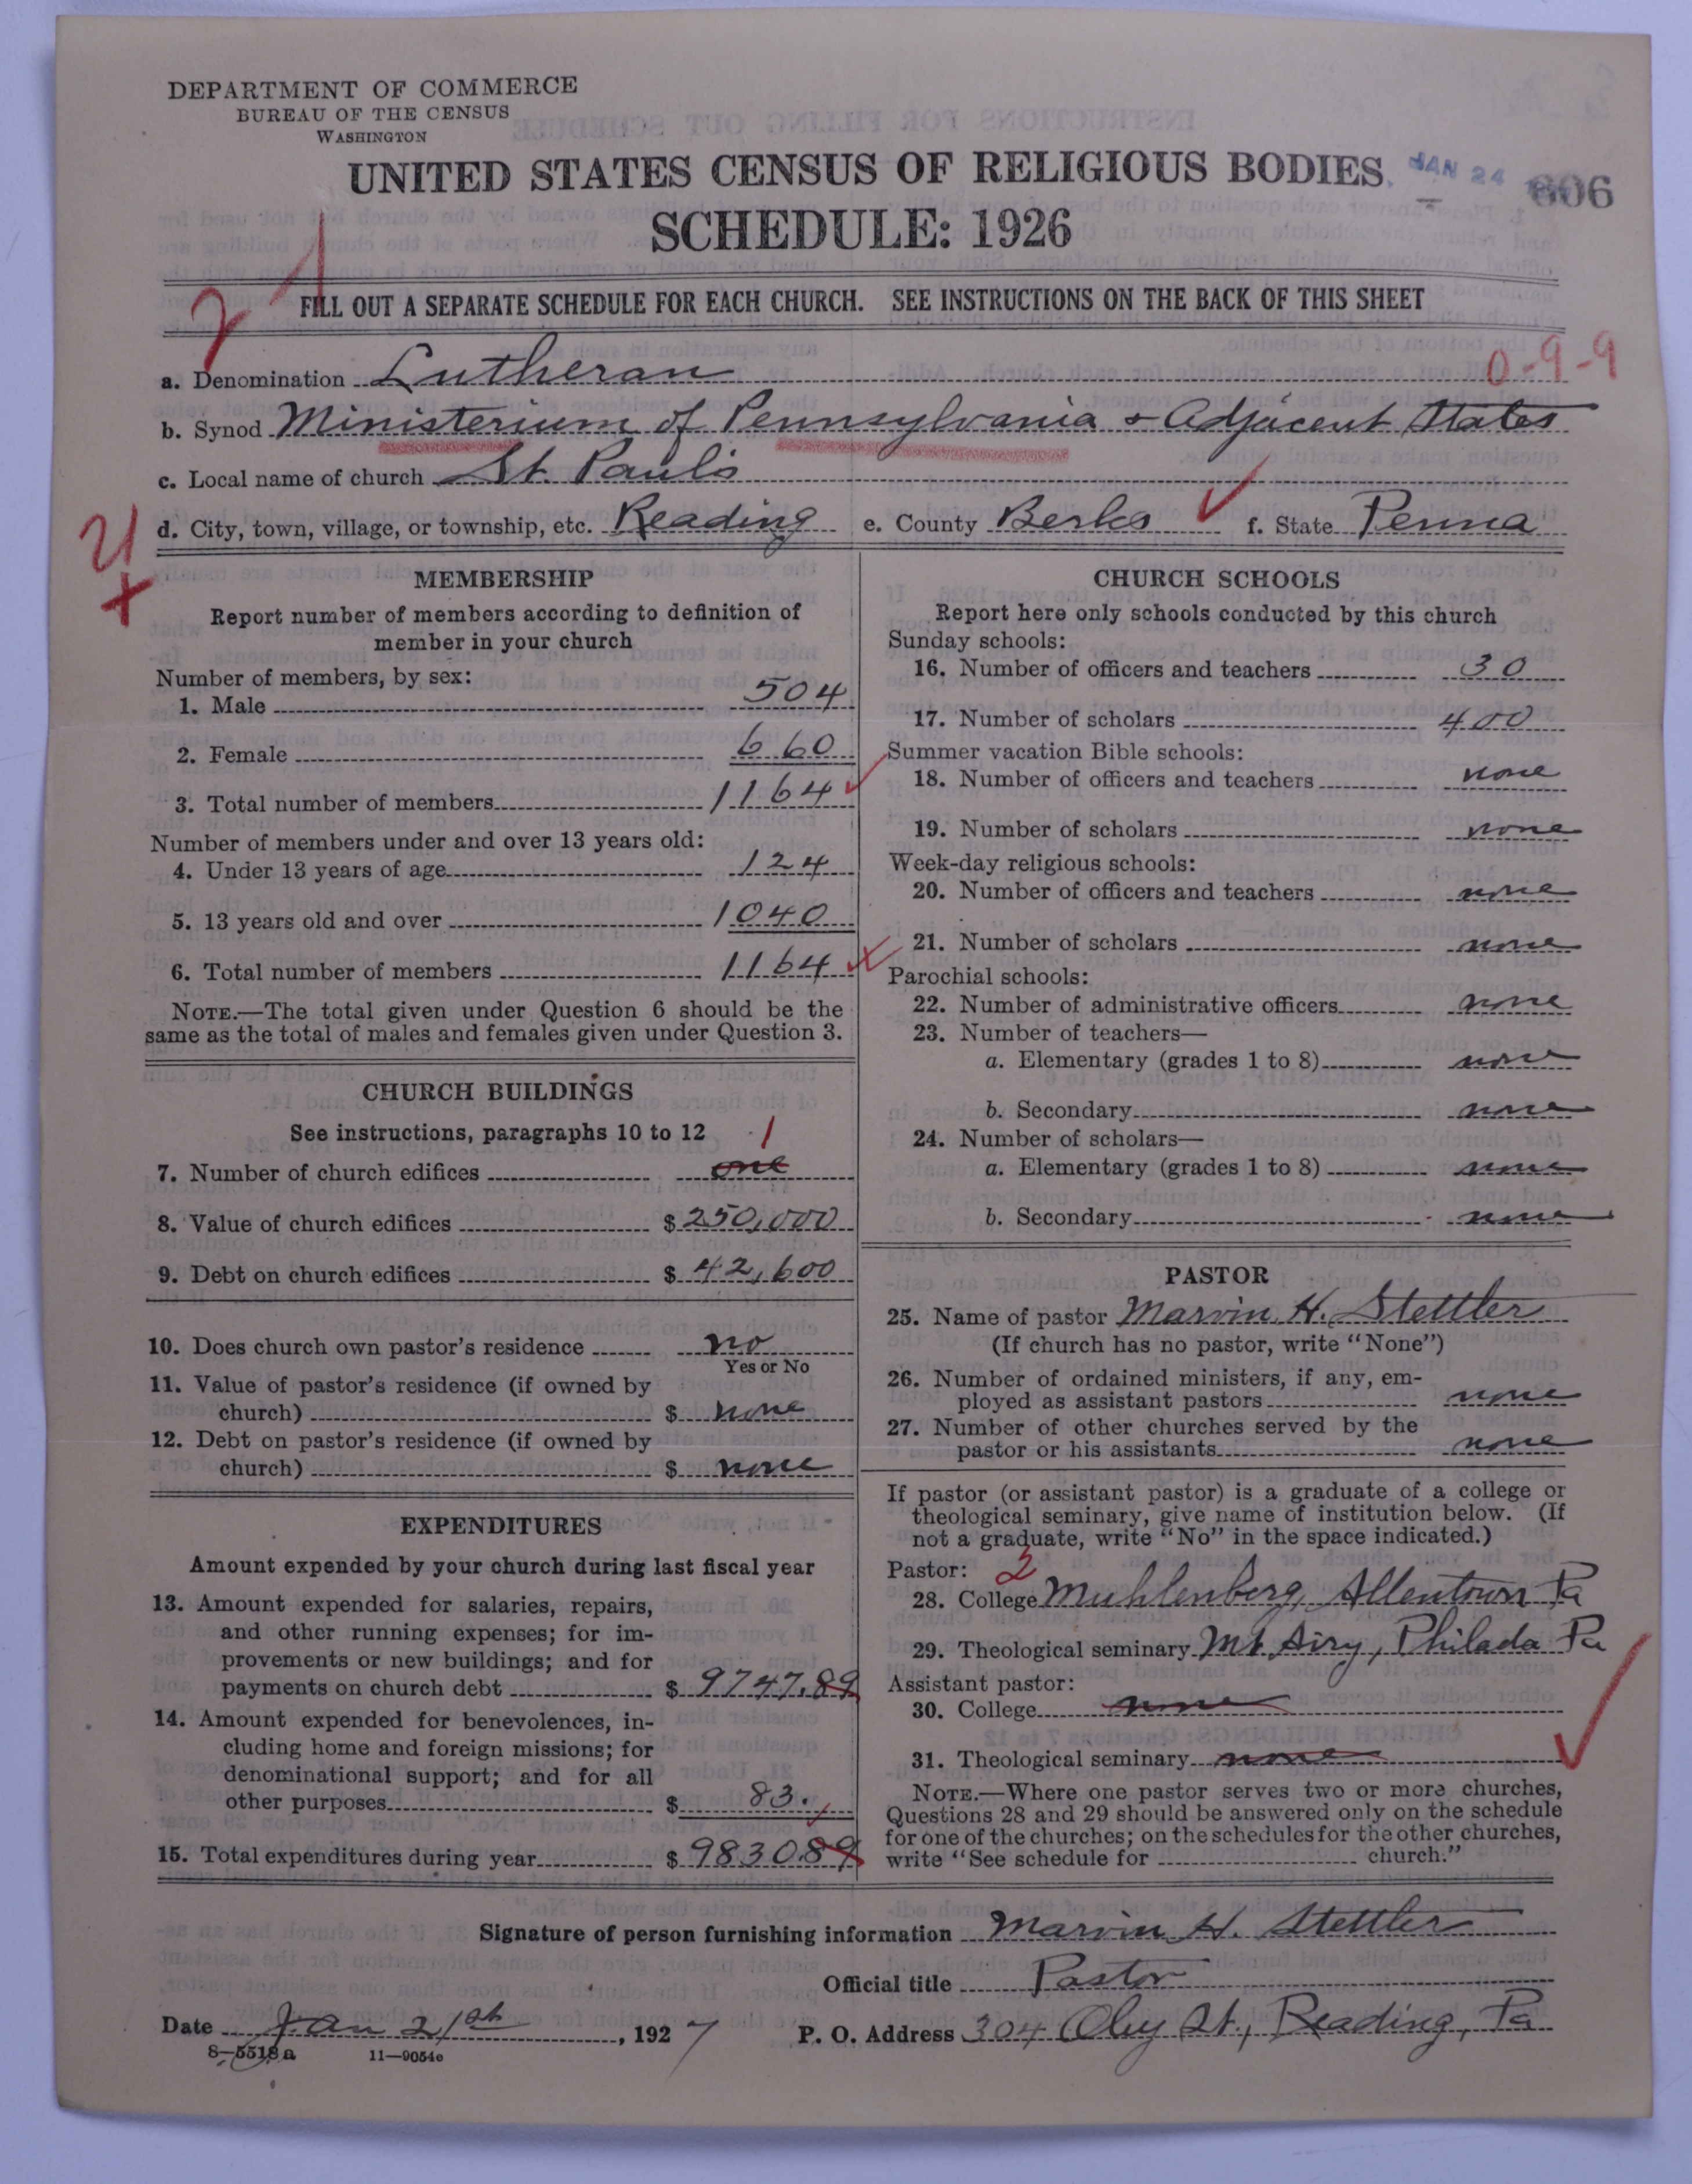 DEPARTMENT OF COMMERCE
BUREAU OF THE CENSUS
WASHINGTON
UNITED STATES CENSUS OF RELIGIOUS BODIES
JAN 24
606
SCHEDULE: 1926
FILL OUT A SEPARATE SCHEDULE FOR EACH CHURCH. SEE INSTRUCTIONS ON THE BACK OF THIS SHEET
0-9-9
a. Denomination Lutheran
b. Synod Ministerium of Pennsylvania & Adjacent States
c. Local name of church St. Paul's
d. City, town, village, or township, etc. Reading e. County Berks f. State Penna
MEMBERSHIP
Report number of members according to definition of
member in your church
Number of members, by sex:
1. Male 504
2. Female 660
3. Total number of members 1164
Number of members under and over 13 years old:
4. Under 13 years of age 124
5. 13 years old and over 1040
6. Total number of members 1164
NOTE.—The total given under Question 6 should be the
same as the total of males and females given under Question 3.
CHURCH BUILDINGS
See instructions, paragraphs 10 to 12
1
7. Number of church edifices one
8. Value of church edifices $ 250,000
9. Debt on church edifices $ 42,600
10. Does church own pastor's residence no
Yes or No
11. Value of pastor's residence (if owned by
church) $ none
12. Debt on pastor's residence (if owned by
church) $ none
EXPENDITURES
Amount expended by your church during last fiscal year
13. Amount expended for salaries, repairs,
and other running expenses; for im-
provements or new buildings; and for
payments on church debt $ 9747.89
14. Amount expended for benevolences, in-
cluding home and foreign missions; for
denominational support; and for all
other purposes $ 83.
15. Total expenditures during year $ 9830.89
CHURCH SCHOOLS
Report here only schools conducted by this church
Sunday schools:
16. Number of officers and teachers 30
17. Number of scholars 400
Summer vacation Bible schools:
18. Number of officers and teachers none
19. Number of scholars none
Week-day religious schools:
20. Number of officers and teachers none
21. Number of scholars none
Parochial schools:
22. Number of administrative officers none
23. Number of teachers—
a. Elementary (grades 1 to 8) none
b. Secondary none
24. Number of scholars—
a. Elementary (grades 1 to 8) none
b. Secondary none
PASTOR
25. Name of pastor Marvin H. Stettler
(If church has no pastor, write "None")
26. Number of ordained ministers, if any, em-
ployed as assistant pastors none
27. Number of other churches served by the
pastor or his assistants none
If pastor (or assistant pastor) is a graduate of a college or
theological seminary, give name of institution below. (If
not a graduate, write "No" in the space indicated.)
Pastor: 2
28. College Muhlenberg, Allentown Pa
29. Theological seminary Mt Airy, Philada Pa
Assistant pastor:
30. College none
31. Theological seminary none
NOTE.—Where one pastor serves two or more churches,
Questions 28 and 29 should be answered only on the schedule
for one of the churches; on the schedules for the other churches,
write "See schedule for church."
Signature of person furnishing information Marvin H. Stettler
Official title Pastor
Date Jan 21st, 1927 P. O. Address 304 Oley St., Reading, Pa
8—5518a 11—9054c